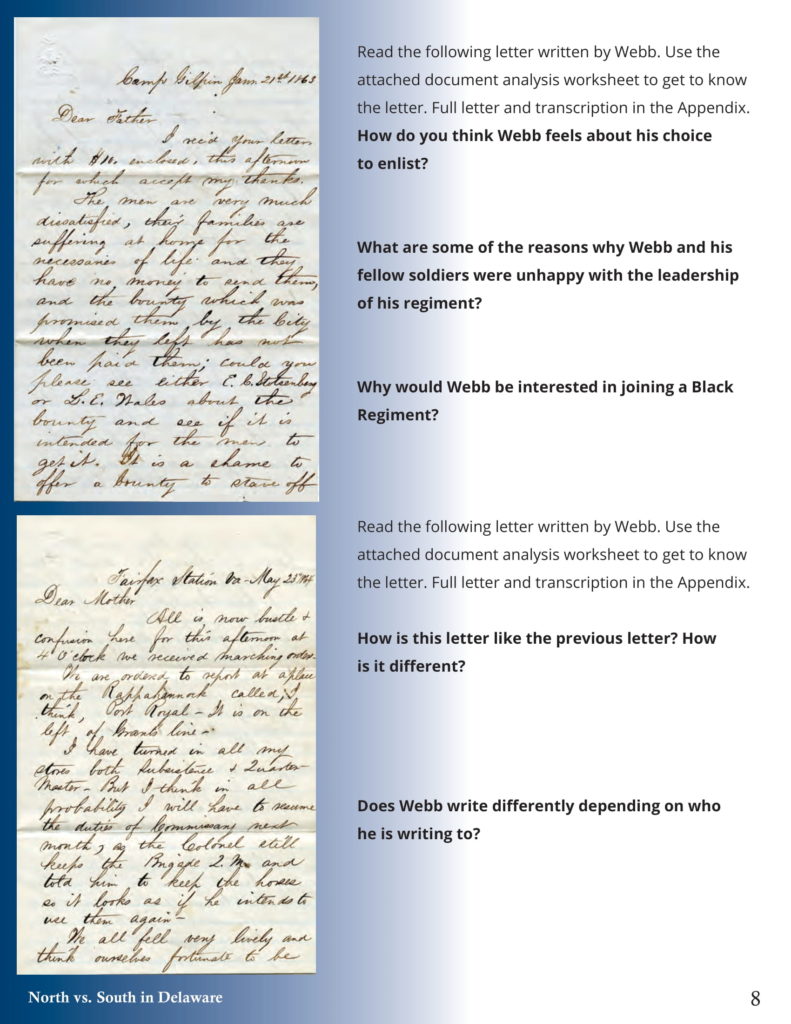 Camp Gilpin Jann 21st 1863
Dear Father
I rec'd your letter
with $10. enclosed, this afternoon
for which accept my thanks.
The men are very much
dissatisfied, their families are
suffering at home for the
necessaries of life and they
have no money to send them,
and the bounty which was
promised them by the City
when they left has not
been paid them; could you
please see either E. C.
or L. E. Wales about the
bounty and see if it is
intended for the men to
get it. It is a shame to
offer a bounty to stave off
Read the following letter written by Webb. Use the
attached document analysis worksheet to get to know
the letter. Full letter and transcription in the Appendix.
How do you think Webb feels about his choice
to enlist?
What are some of the reasons why Webb and his
fellow soldiers were unhappy with the leadership
of his regiment?
Why would Webb be interested in joining a Black
Regiment?
Fairfax Station Va - May 25th /64
Dear Mother
All is now bustle &
confusion here for this afternoon at
4 O'clock we received marching orders-
We are ordered to report at a place
on the Rappahannock called, I
think, Port Royal - It is on the
left of Grants line -
I have turned in all my
stores both Subsistence & Quarter-
Master - But I think in all
probability I will have to resume
the duties of Commissary next
month, as the Colonel still
keeps the Brigade Q. M. and
told him to keep the horses
so it looks as if he intends to
use them again -
We all fell very lively and
think ourselves fortunate to be
Read the following letter written by Webb. Use the
attached document analysis worksheet to get to know
the letter. Full letter and transcription in the Appendix.
How is this letter like the previous letter? How
is it different?
Does Webb write differently depending on who
he is writing to?
North vs. South in Delaware
8